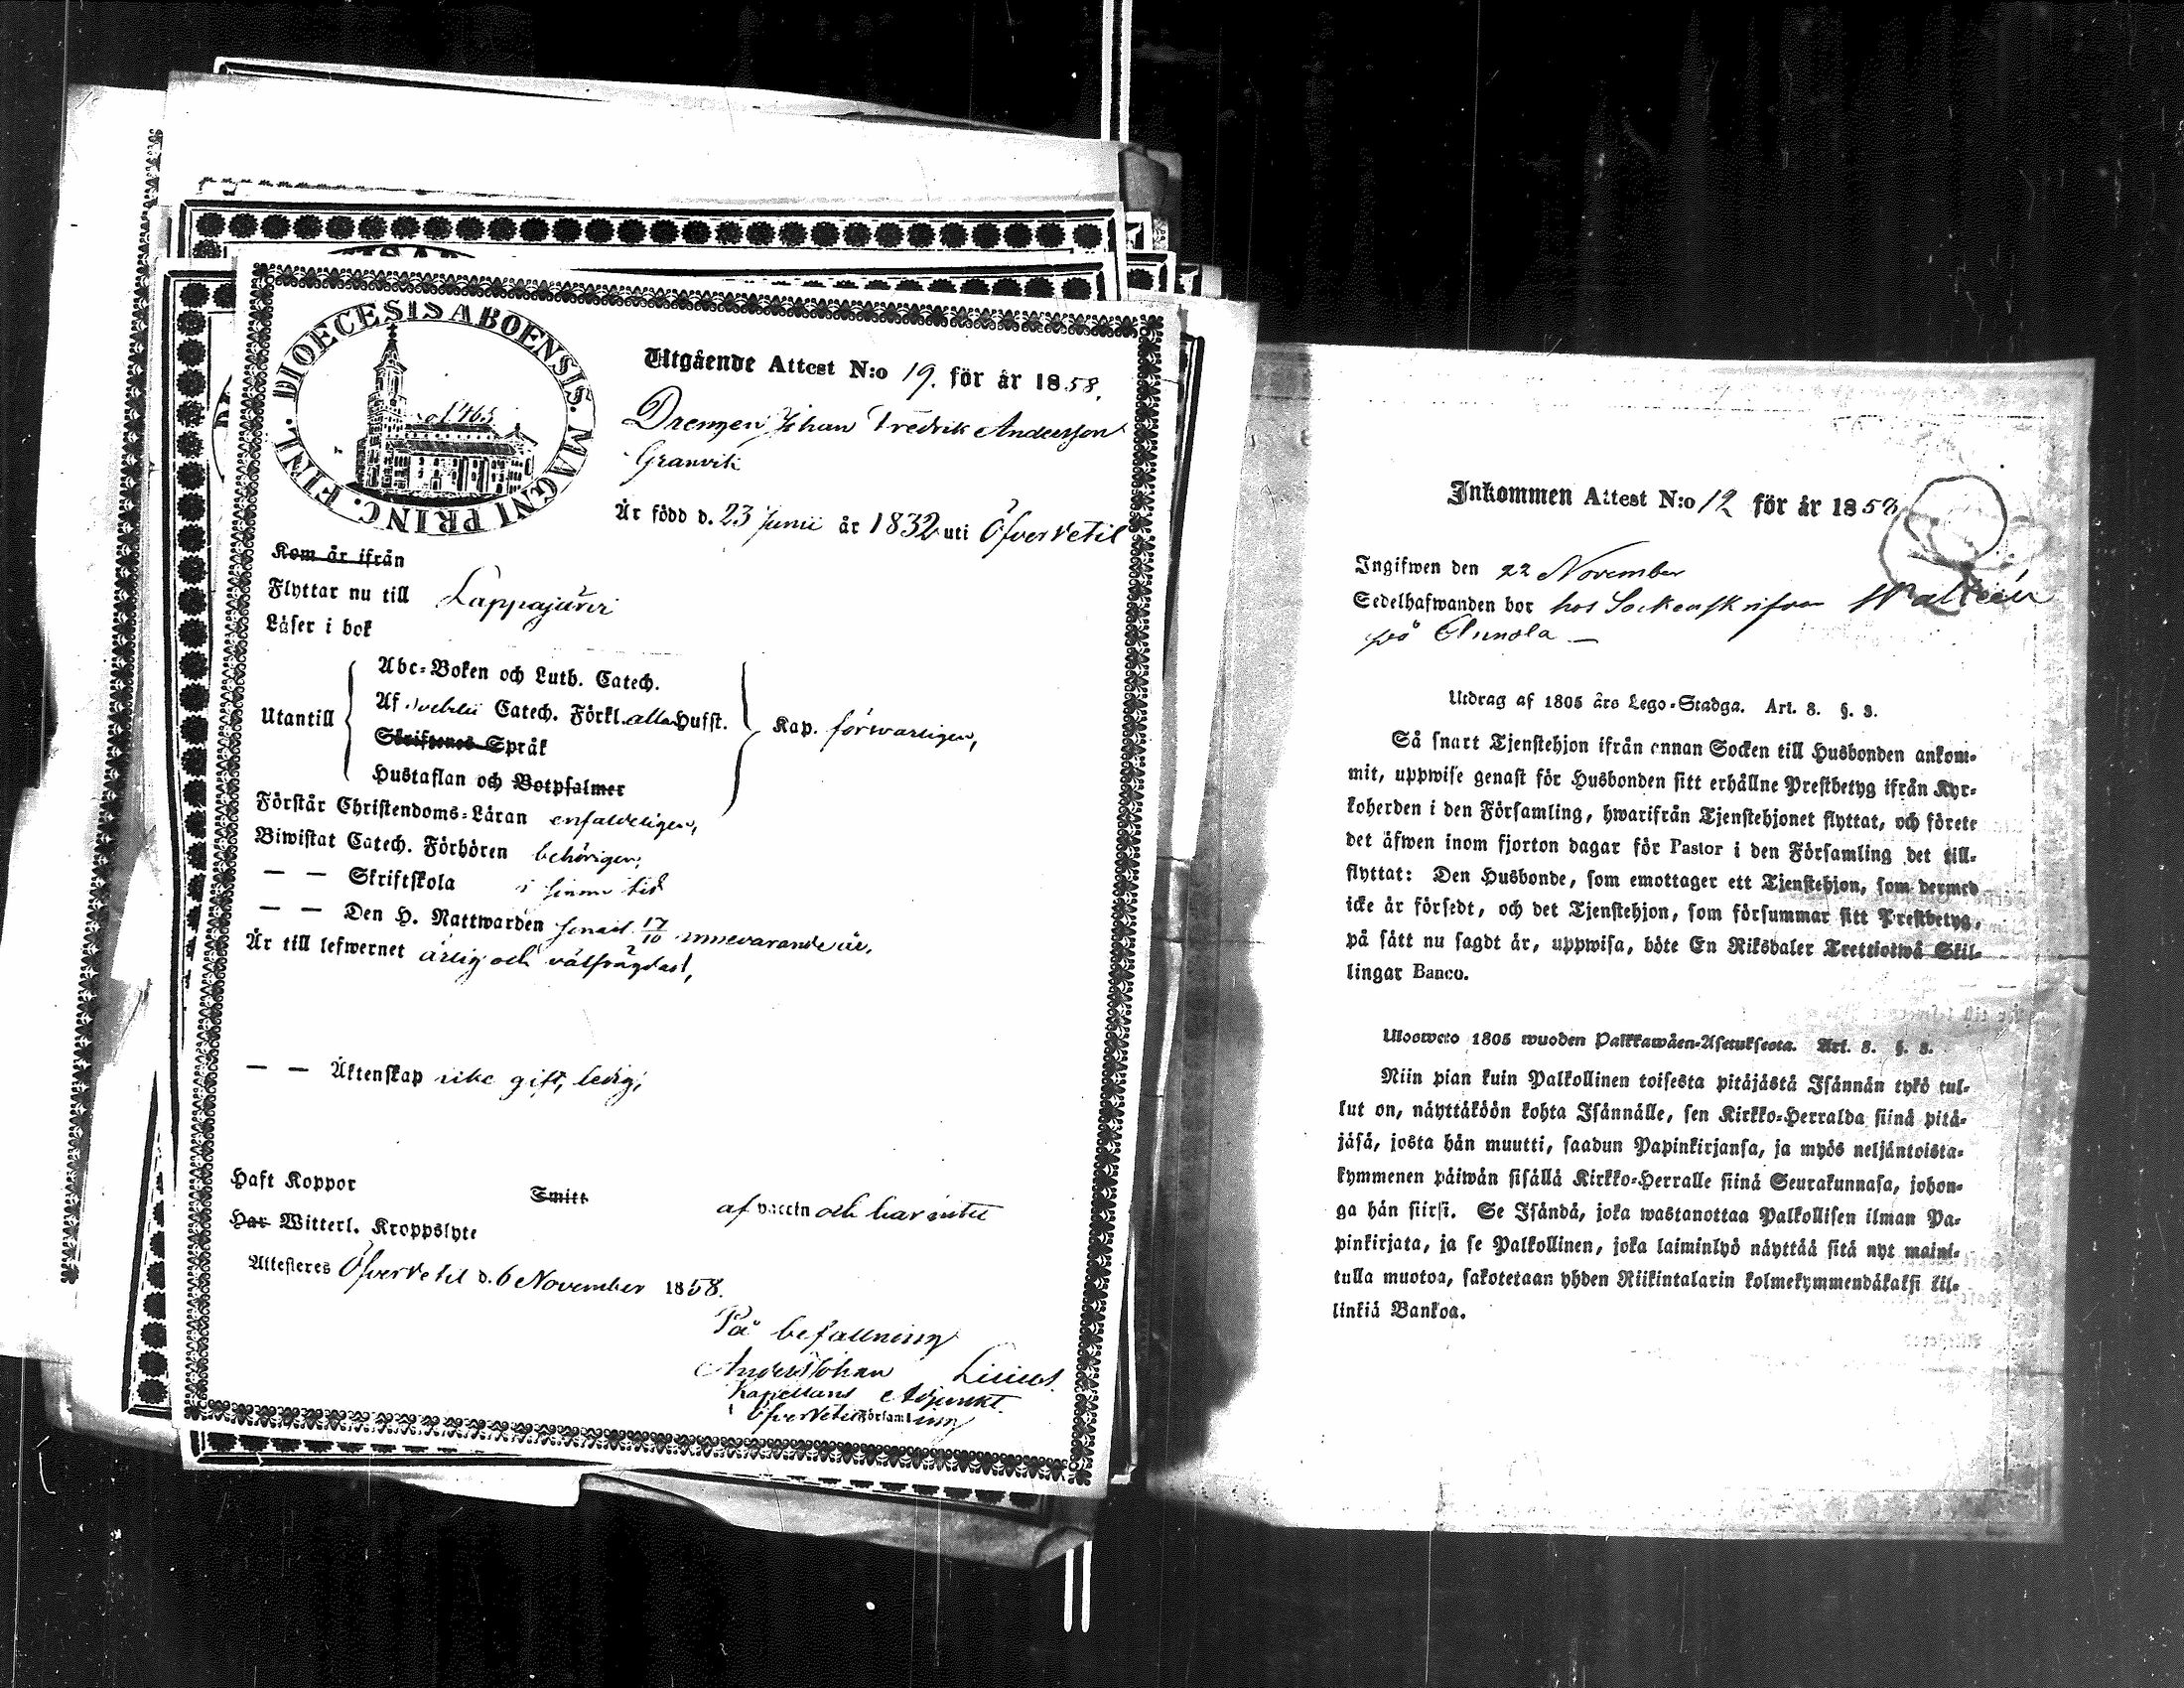 DIOECESIS ABOENSIS. MAGNI PRINC. FINL.
Utgående Attest N:o 19. för år 1858.
Drengen Johan Fredrik Andersson
Granvik
Är född d. 23 Junii år 1832 uti Öfvervetil
Kom är ifrån
Flyttar nu till Lappajärvi
Läser i bok
Abc-Boken och Luth. Catech.
Utantill Af Catech. Förkl. alla Hufst. Kap. försvarligen,
Skriftenes Språk
Hustaflan och Botpsalmer
Förstår Christendoms-Läran enfaldeligen,
Biwistat Catech. Förhören behörigen,
— — Skriftskola i sinom tid
— — Den H. Nattwarden senast 17/10 innevarande år,
Är till lefwernet ärlig och välfrägdad,
— — Äktenskap icke gift, ledig,
Haft Koppor Smitt af vaccin och har intet
Har Witterl. Kroppslyte
Attesteres Öfvervetil d. 6 November 1858.
På befallning
Anders Johan
Kapellans Adjunkt
i Öfvervetil Församling
Inkommen Attest N:o 12 för år 1858
Ingifwen den 22 November
Sedelhafwanden bor hos Sockenskrifvare
på Annola —
Utdrag af 1805 års Lego-Stadga. Art. 8. §. 3.
Så snart Tjenstehjon ifrån annan Socken till Husbonden ankom-
mit, uppwise genast för Husbonden sitt erhållne Prestbetyg ifrån Kyr-
koherden i den Församling, hwarifrån Tjenstehjonet flyttat, och förete
det äfwen inom fjorton dagar för Pastor i den Församling det till-
flyttat: Den Husbonde, som emottager ett Tjenstehjon, som dermed
icke är försedt, och det Tjenstehjon, som försummar sitt Prestbetyg,
på sätt nu sagdt är, uppwisa, böte En Riksdaler Trettiotwå Skil-
lingar Banco.
Ulosweto 1805 wuoden Palkkawäen-Asetuksesta. Art. 8. §. 3.
Niin pian kuin Palkollinen toisesta pitäjästä Isännän tykö tul-
lut on, näyttäköön kohta Isännälle, sen Kirkko-Herralda siinä pitä-
jäsä, josta hän muutti, saadun Papinkirjansa, ja myös neljäntoista-
kymmenen päiwän sisällä Kirkko-Herralle siinä Seurakunnasa, johon-
ga hän siirsi. Se Isändä, joka wastanottaa Palkollisen ilman Pa-
pinkirjata, ja se Palkollinen, joka laiminlyö näyttää sitä nyt maini-
tulla muotoa, sakotetaan yhden Riikintalarin kolmekymmendäkaksi kil-
linkiä Bankoa.